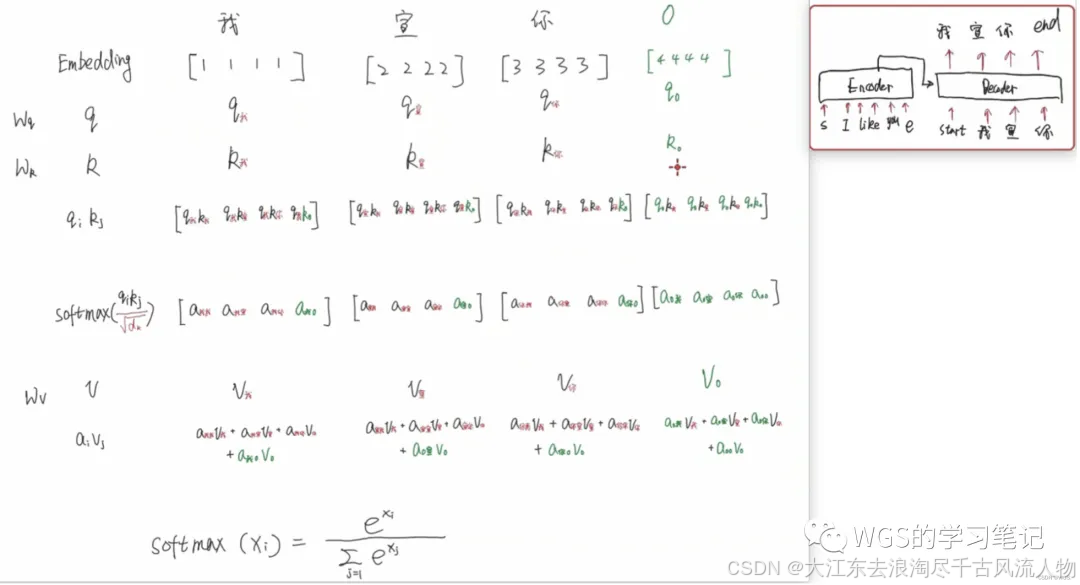 我 宣 你 0
Embedding [1 1 1 1] [2 2 2 2] [3 3 3 3] [4 4 4 4]
Wq q q我 q宣 q你 q0
Wk k k我 k宣 k你 k0
qi kj [q我k我 q我k宣 q我k你 q我k0] [q宣k我 q宣k宣 q宣k你 q宣k0] [q你k我 q你k宣 q你k你 q你k0] [q0k我 q0k宣 q0k你 q0k0]
softmax(qikj/√dk) [a我我 a我宣 a我你 a我0] [a宣我 a宣宣 a宣你 a宣0] [a你我 a你宣 a你你 a你0] [a0我 a0宣 a0你 a00]
Wv V V我 V宣 V你 V0
aivj a我我V我 + a我宣V宣 + a我你V你 a宣我V我 + a宣宣V宣 + a宣你V你 a你我V我 + a你宣V宣 + a你你V你 a0我V我 + a0宣V宣 + a0你V你
+ a我0V0 + a0宣V0 + a你0V0 + a00V0
softmax (xi) = e^xi / Σj=1 e^xj
我 宣 你 end
Encoder Decoder
s I like e start 我 宣 你
WGS的学习笔记
CSDN @大江东去浪淘尽千古风流人物